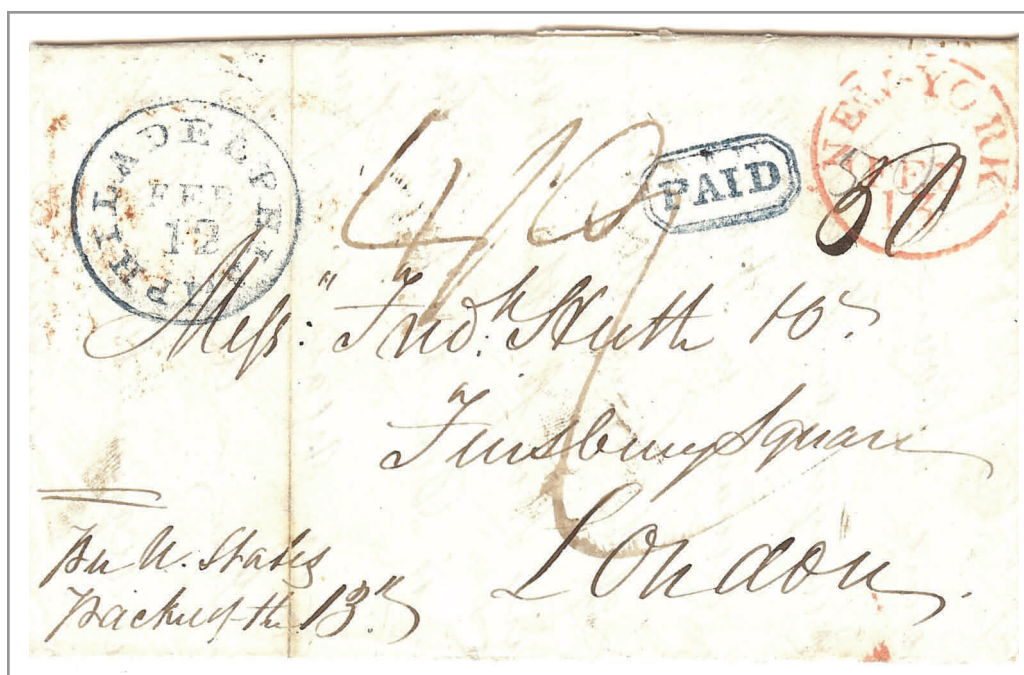 PHILADELPHIA
FEB
12
PAID
NEW-YORK
FEB
13
30
Mess:" Fred.k Huth & Co.
Finsbury Square
London.
Per U. States
Packet of the 13"